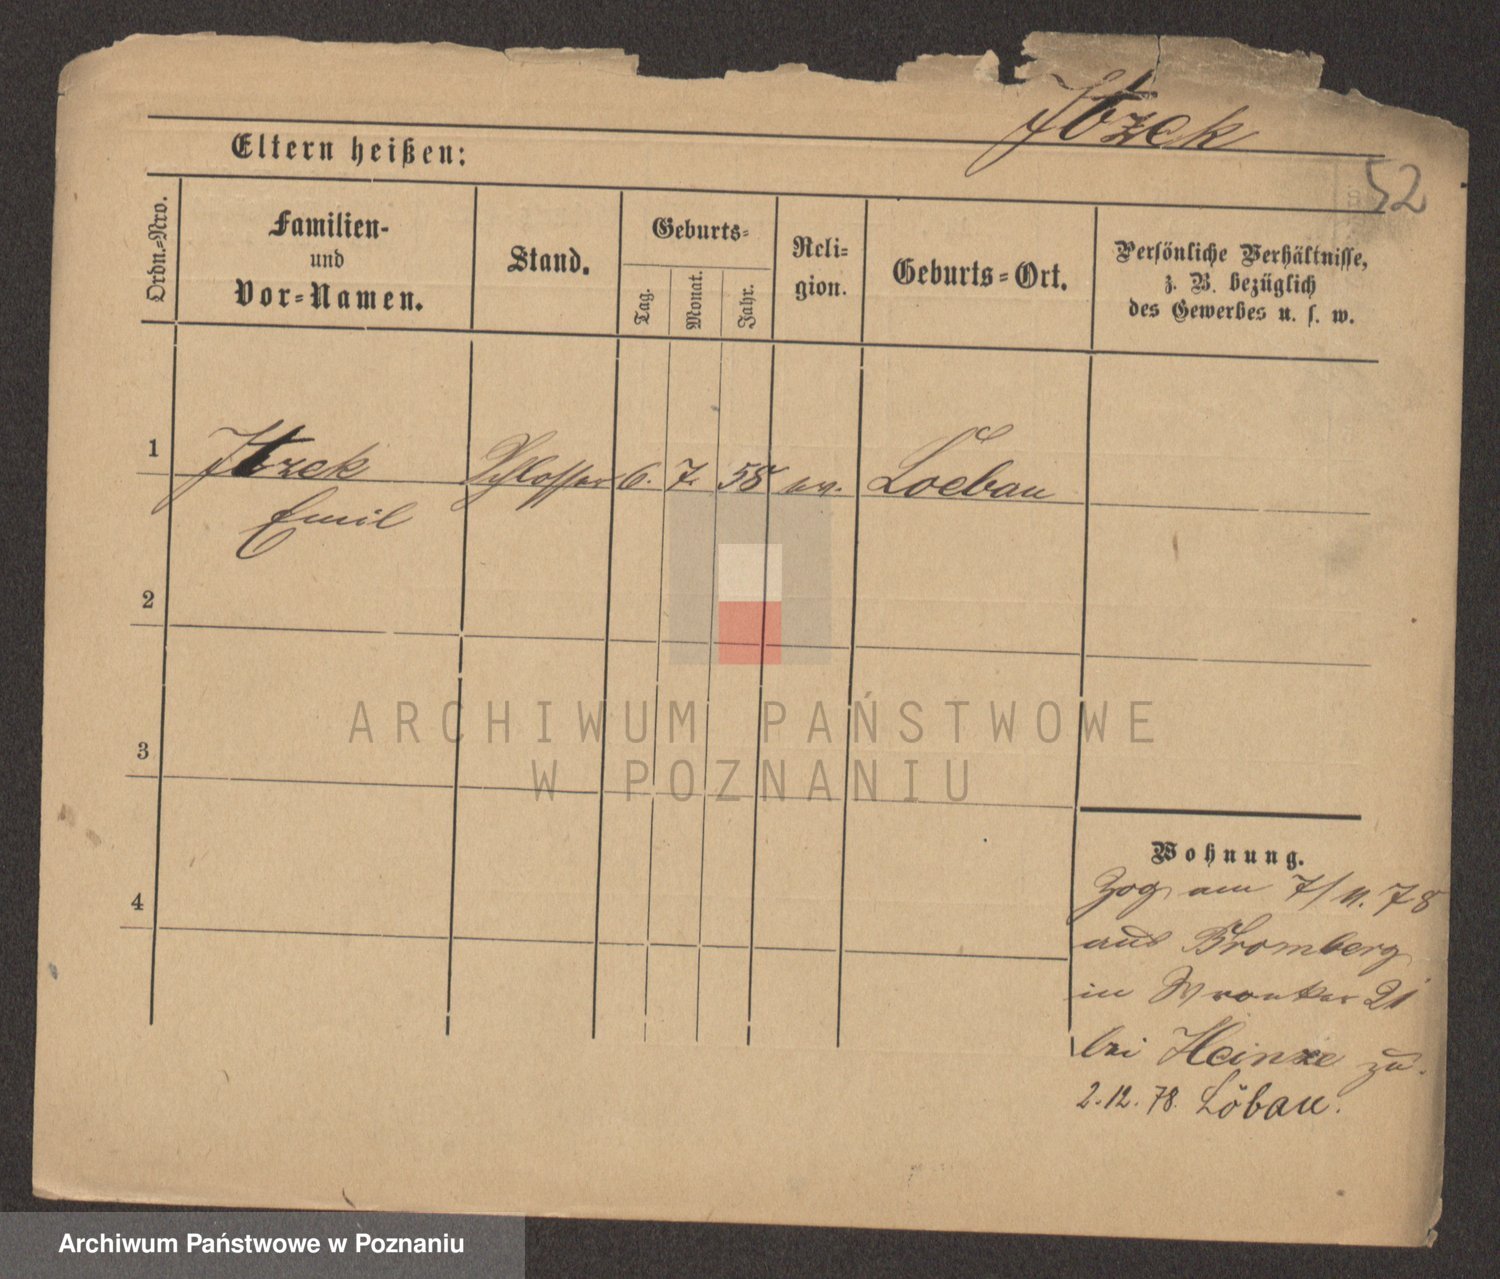 Itzek
52
Eltern heißen:
Ordn.-Nro.
Familien-
und
Vor-Namen.
Stand.
Geburts-
Tag.
Monat.
Jahr.
Reli-
gion.
Geburts-Ort.
Persönliche Verhältnisse,
z. B. bezüglich
des Gewerbes u. s. w.
1
Itzek Schlosser 6. 7. 58 ev. Loebau
Emil
2
3
4
ARCHIWUM PAŃSTWOWE
W POZNANIU
Wohnung.
Zog am 7/11. 78
aus Bromberg
in Wronker 21
bei Heinze zu.
2.12.78. Löbau.
Archiwum Państwowe w Poznaniu